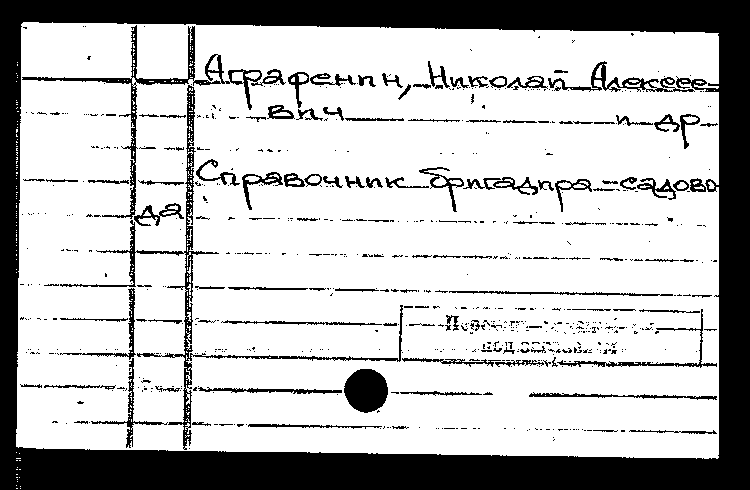 Аграфенин, Николай Алексее-
вич и др
Справочник бригадира-садово
да
под